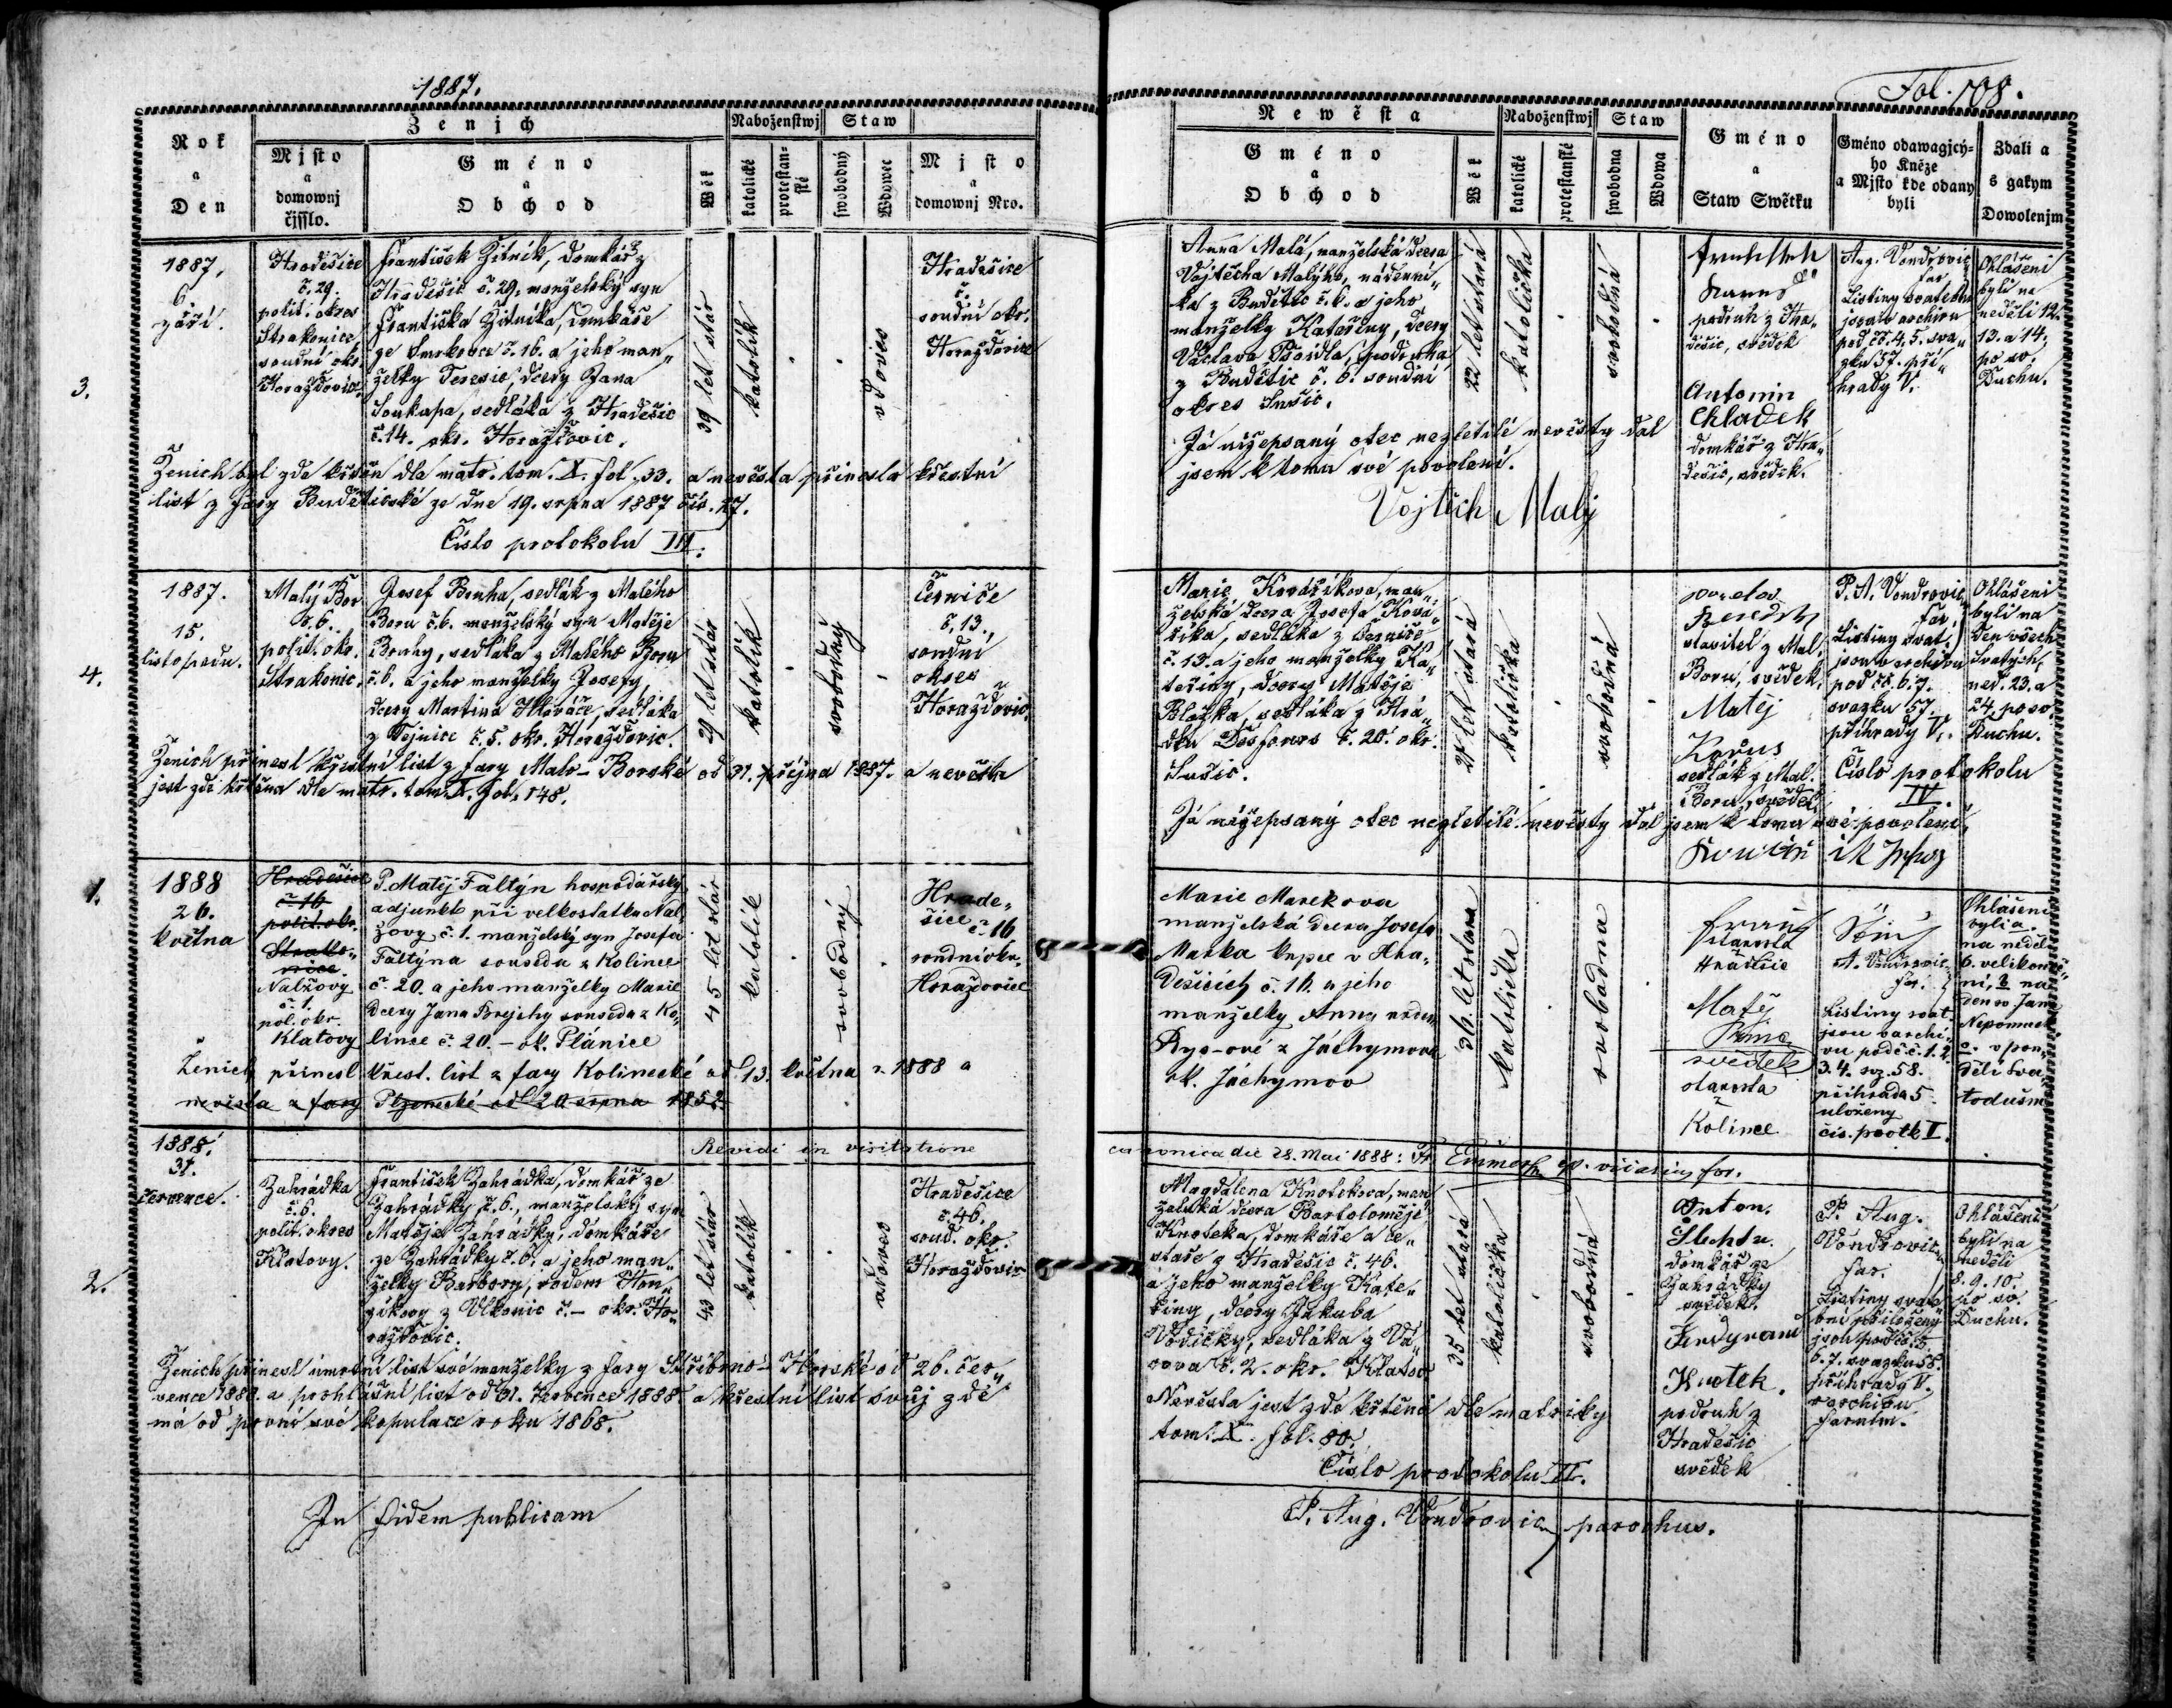 1887.
Fol. 108.
Rok
a
Den
Ženich
Mjsto
a
domownj
čjsslo.
Gméno
a
Obchod
Wěk
Naboženstwj
katolické
protestan-
ské
Staw
swobodný
Wdowec
Mjsto
a
domownj Nro.
Newěsta
Gméno
a
Obchod
Wěk
Naboženstwj
katolické
protestanské
Staw
swobodna
Wdowa
Gméno
a
Staw Swětku
Gméno odawagjcý-
ho Kněze
a Mjsto kde odany
byli
Zdali a
s gakym
Dowolenjm
3.
1887.
6.
září.
Hradešice
č. 29.
polit. okres
Strakonice,
soudní okr.
Horažďovic.
František Žitník, domkář z
Hradešic č. 29, manželský syn
Františka Žitníka, domkáře
ze Smrkovce č. 16. a jeho man„
želky Teresie, dcery Jana
Soukupa, sedláka z Hradešic
č. 14. okr. Horažďovic.
39 let stár
katolík
vdovec
Hradešice
č.
soudní okr.
Horažďovice
Anna Malá, manželská dcera
Vojtěcha Malýho, nádenní„
ka z Budětic č. 6. a jeho
manželky Kateřiny, dcery
Václava Bosidla, podruha
z Budětic č. 6. soudní
okres Sušic.
22 let stará
katolička
svobodná
podruh z Hra„
dešic, svědek
Antonin
Chladek
domkář z Hra„
dešic, svědek.
Aug. Vondrovic
far.
Listiny svatební
jsou v archivu
pod čč. 4. 5. sva„
zku 57. při„
hrady V.
Ohlášeni
byli na
neděli 12.
13. a 14.
po sv.
Duchu.
Ženich byl zde křtěn dle matr. tom. X. fol. 33. a nevěsta přinesla křestní
list z fary Budětické ze dne 19. srpna 1887 čís. 27.
Číslo protokolu III.
Já nížepsaný otec nezletilé nevěsty dal
jsem k tomu své povolení.
Vojtěch Malý
4.
1887.
15.
listopadu.
Malý Bor
č. 6.
polit. okr.
Strakonic.
Josef Bruha, sedlák z Malého
Boru č. 6. manželský syn Matěje
Bruhy, sedláka z Malého Boru
č. 6. a jeho manželky Josefy,
dcery Martina Hlaváče, sedláka
z Tejnice č. 5. okr. Horažďovic.
29 let stár
katolík
svobodný
Černíče
č. 13.,
soudní
okres
Horažďovic.
Marie Kovaříkova, man„
želská dcera Josefa Kova„
říka, sedláka z Černíče
č. 13. a jeho manželky Ka„
teřiny, dcery Matěje
Blažka, sedláka z Hrá„
dku Desfours č. 20. okr.
Sušic.
21 let stará
katolička
svobodná
stavitel z Mal.
Boru, svědek.
Matěj
sedlák z Mal.
Boru, svědek
P. A. Vondrovic,
far.
Listiny svat.
jsou v archivu
pod čč. 6. 7.
svazku 57.
přihrady V.
Ohlášeni
byli na
Den všech
Svatých,
ned. 23. a
24. po sv.
Duchu.
Ženich přinesl křestní list z fary Malo-Borské od 31. října 1887. a nevěsta
jest zde křtěna dle matr. tom. X. fol. 148.
Číslo protokolu
IV.
Já nížepsaný otec nezletilé nevěsty dal jsem k tomu své povolení.
1.
1888
26.
května
Hradešice
č 16
polit. okr.
Strako-
nice.
Nalžovy
č. 1.
pol. okr.
Klatovy
P. Matěj Faltýn hospodářský
adjunkt při velkostatku Nal„
žovy č. 1. manželský syn Josefa
Faltýna souseda z Kolince
č. 20. a jeho manželky Marie
dcery Jana Brejchy souseda z Ko„
lince č. 20. – ok. Plánice
45 let stár
katolík
svobodný
Hrade„
šice č. 16
soudní okr.
Horažďovice
Marie Marekova
manželská dcera Josefa
Marka kupce v Hra„
dešicích č. 16. a jeho
manželky Anny rozen.
z Jáchymova
ok. Jáchymov
36. let stara
katolička
svobodna
starosta
Hradešic
Matěj
svědek
starosta
z
Kolince
A. Vondrovic,
far.
Listiny svat.
jsou v archi„
vu pod čč. 1. 2.
3. 4. svz. 58.
přihrada 5
uloženy
čís. protk I.
Ohlášene
byli a.
na neděli
6. velikonoč„
ní, b na
den sv Jana
Nepomuck.
c. v pon„
dělí Sva„
todušní
Ženich přinesl křest. list z fary Kolinecké od 13. května r. 1888 a
nevěsta z fary Plzenecké od 20 srpna 1852
Revidi in visitatione canonica die 28. Mai 1888: Fr.
2.
1888.
31.
července.
Zahrádka
č. 6.
polit. okres
Klatovy.
František Zahrádka, domkář ze
Zahrádky č. 6., manželský syn
Matěje Zahrádky, domkáře
ze Zahrádky č. 6. a jeho man„
želky Barbory, rodem Hon„
zíkovy z Vlkonic č. – okr. Ho„
ražďovic.
43 let stár
katolík
vdovec
Hradešice
č. 46.
soud. okr.
Horažďovic
Magdalena Knotekova, man„
želská dcera Bartoloměje
Knoteka, domkáře a ce„
staře z Hradešic č. 46.
a jeho manželky Kate„
řiny, dcery Jakuba
Vodičky, sedláka z
č. 2. okr. Klatov
35 let stará
katolička
svobodná
Anton.
Šlechta.
domkář ze
Zahrádky
svědek.
Ferdynand
Knotek.
podruh z
Hradešic
svědek
P. Aug.
Vondrovic,
far.
Listiny svate„
bní přiloženy
jsou pod čč. 5.
6. 7. svazku 58.
přihrady V.
v archivu
farním.
Ohlášeni
byli na
neděli
8. 9. 10.
po sv.
Duchu.
Ženich přinesl úmrtní list své manželky z fary Stříbrno-Horské od 26. čer„
vence 1888. a prohlášní list od 31. července 1888. a křestní list svůj zde
má od první své kopulace roku 1868.
Nevěsta jest zde křtěná dle matriky
tom. X. fol. 80.
Číslo protokolu II.
In fidem publicam
P. Aug. Vondrovic, parochus.